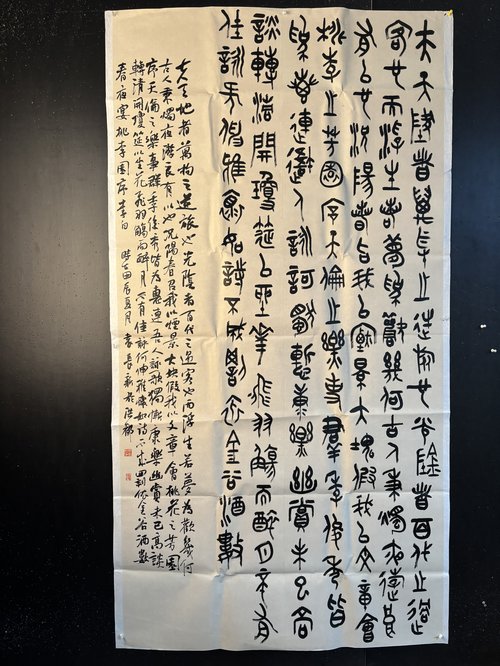 夫天地者萬物之逆旅也光陰者百代之過
客也而浮生若夢爲歡幾何古人秉燭夜遊良
有以也況陽春召我以煙景大塊假我以文章會
桃李之芳園序天倫之樂事羣季俊秀皆
爲惠連吾人詠歌獨慚康樂幽賞未已高
談轉清開瓊筵以坐花飛羽觴而醉月不有
佳詠何伸雅懷如詩不成罰依金谷酒數
夫天地者萬物之逆旅也光陰者百代之過客也而浮生若夢為歡幾何
古人秉燭夜游良有以也況陽春召我以煙景大塊假我以文章會桃花之芳園
序天倫之樂事群季俊秀皆為惠連吾人詠歌獨慚康樂幽賞未已高談
轉清開瓊筵以坐花飛羽觴而醉月不有佳詠何伸雅懷如詩不成罰依金谷酒數
春夜宴桃李園序 李白 時在甲辰夏月